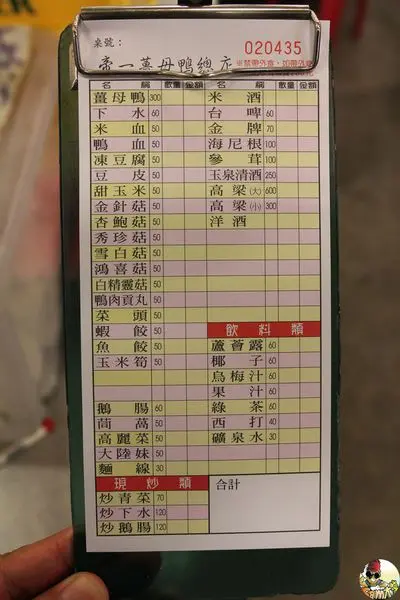 桌號：
帝一薑母鴨總店
020435
※禁帶外食，如帶外食
名稱 數量 金額 名稱 數量 金額
薑母鴨 300
下水 60
米血 50
鴨血 50
凍豆腐 50
豆皮 50
甜玉米 50
金針菇 50
杏鮑菇 50
秀珍菇 50
雪白菇 50
鴻喜菇 50
白精靈菇 50
鴨肉貢丸 50
菜頭 50
蝦餃 50
魚餃 50
玉米筍 50
鵝腸 60
茼萵 50
高麗菜 50
大陸妹 50
麵線 30
現炒類
炒青菜 70
炒下水 120
炒鵝腸 120
米酒
台啤 60
金牌 70
海尼根 100
參茸 100
玉泉清酒 250
高粱(大) 600
高粱(小) 300
洋酒
飲料類
蘆薈露 60
椰子 60
烏梅汁 60
果汁 60
綠茶 60
西打 40
礦泉水 30
合計